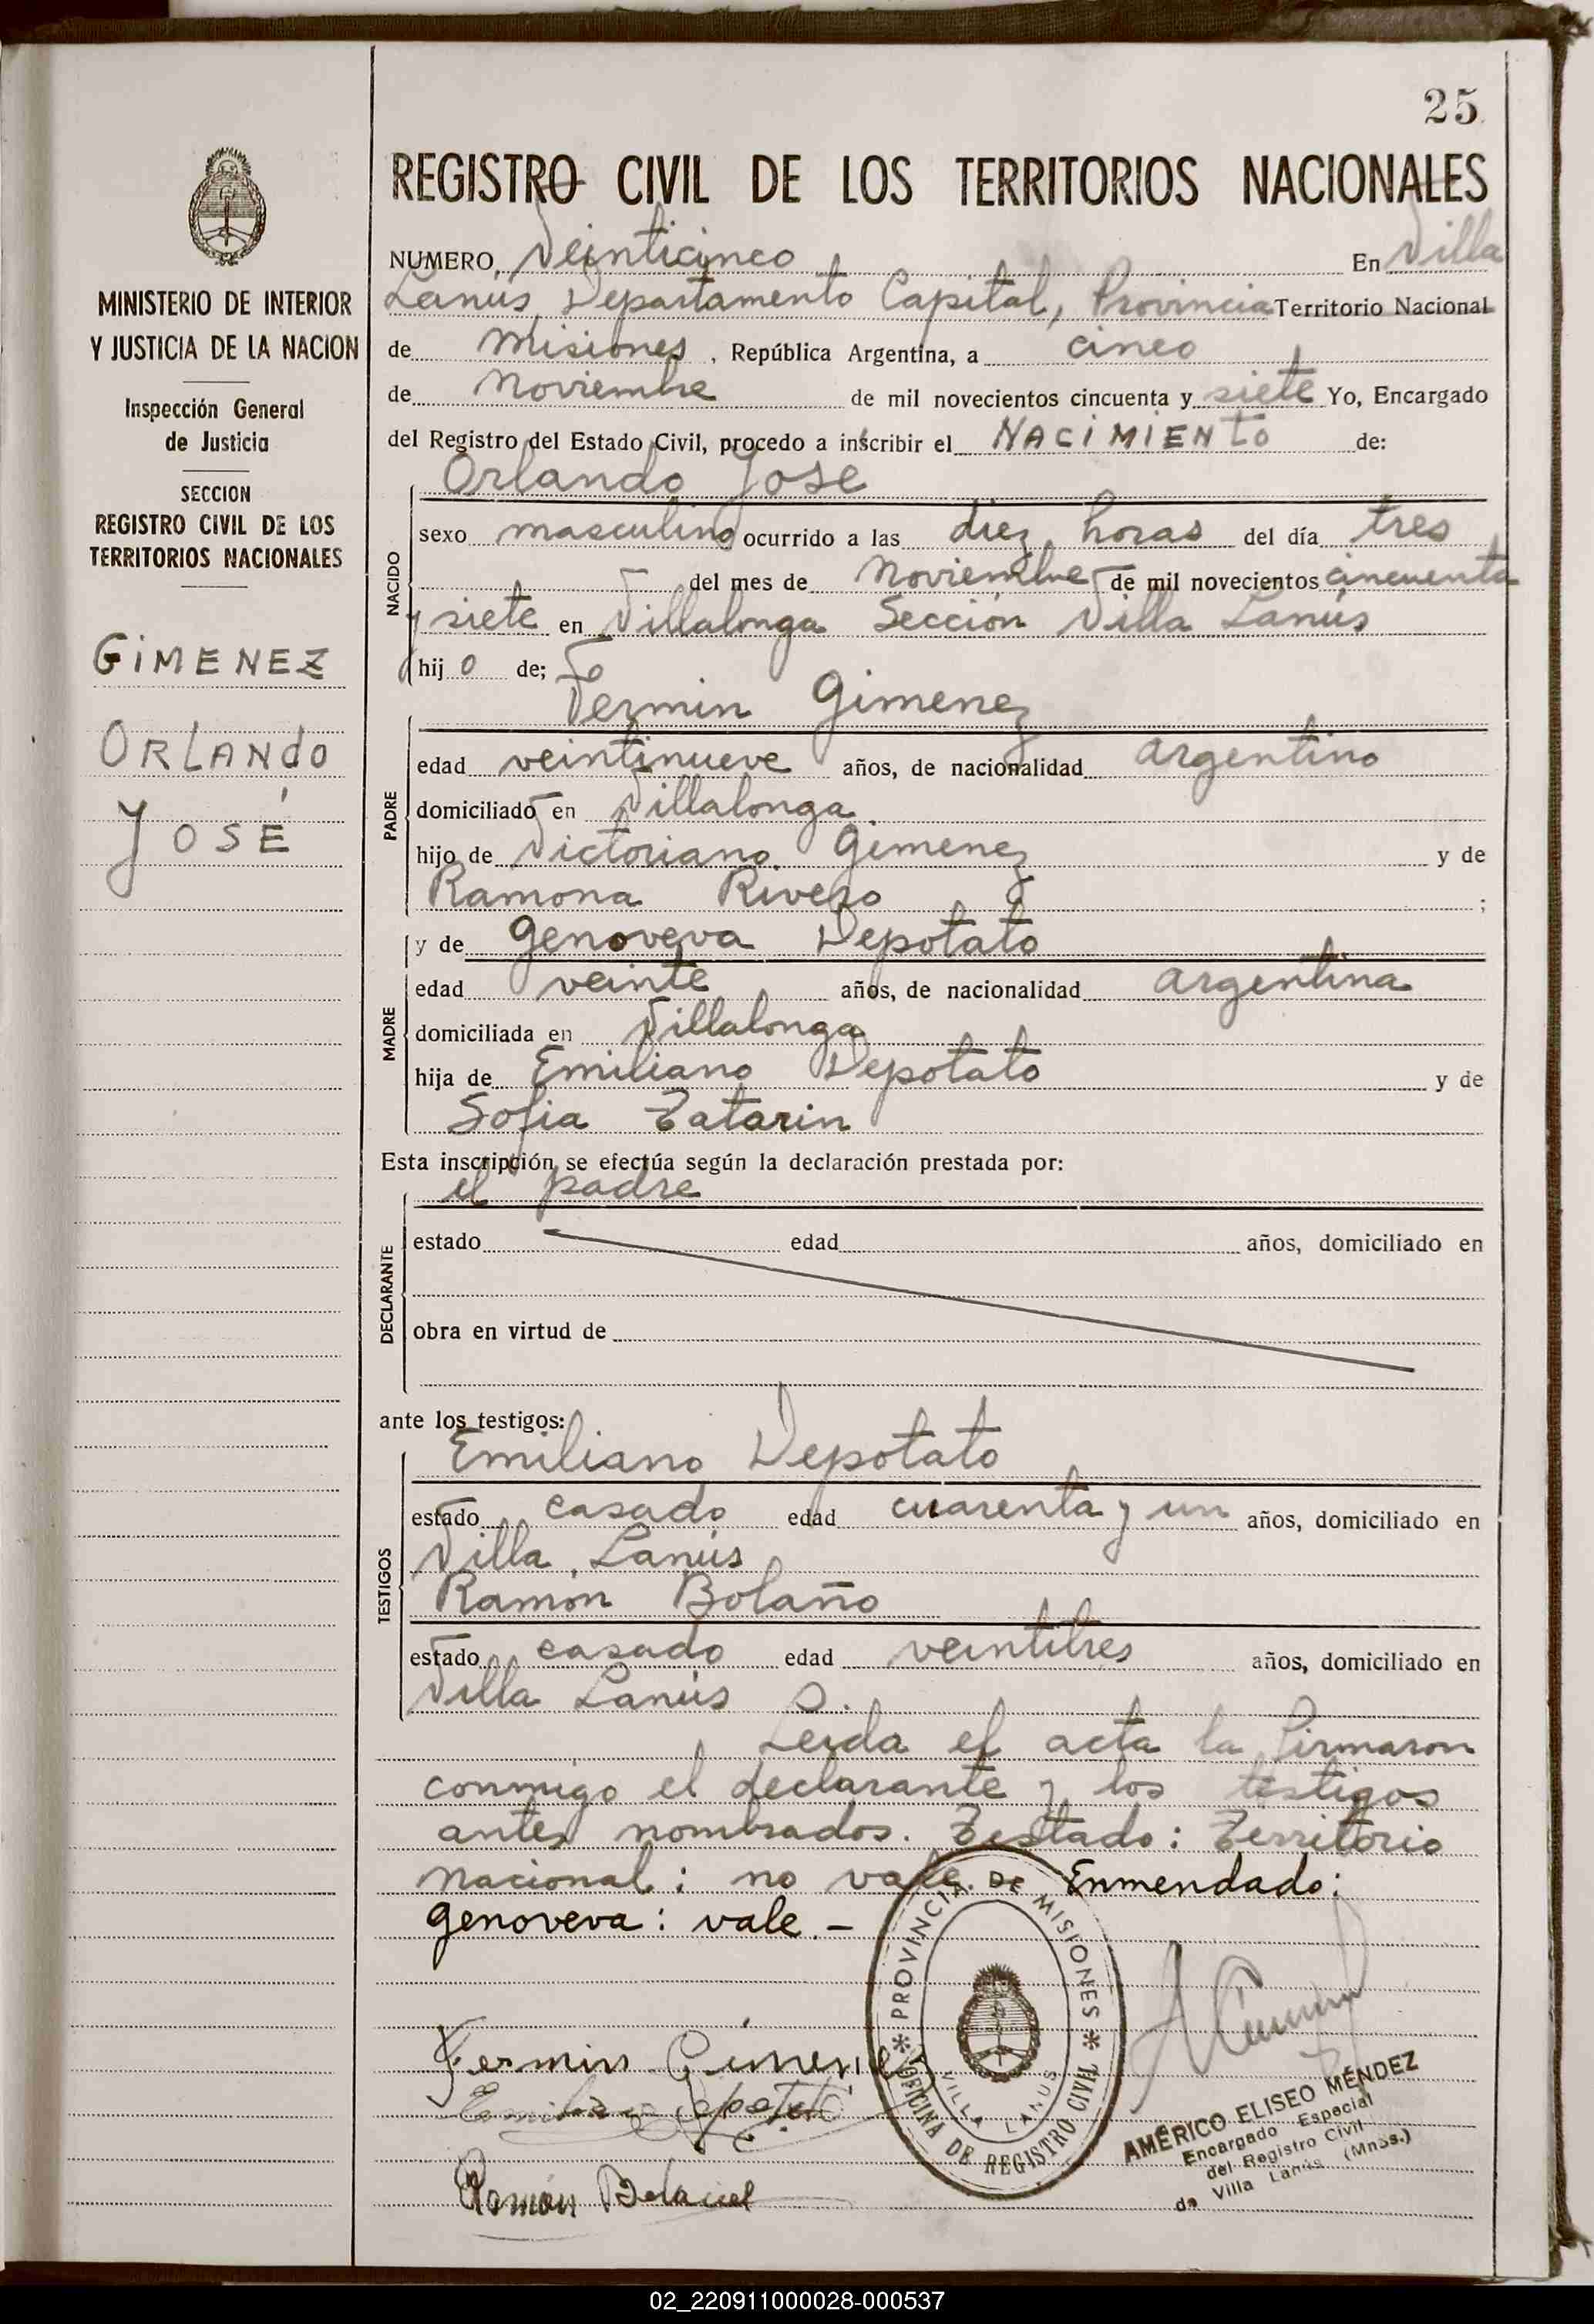 25
MINISTERIO DE INTERIOR
Y JUSTICIA DE LA NACION
Inspección General
de Justicia
SECCION
REGISTRO CIVIL DE LOS
TERRITORIOS NACIONALES
GIMENEZ
ORLANDO
JOSÉ
REGISTRO CIVIL DE LOS TERRITORIOS NACIONALES
NUMERO, Veinticinco En Villa
Lanús, Departamento Capital, Provincia Territorio Nacional
de Misiones, República Argentina, a cinco
de Noviembre de mil novecientos cincuenta y siete Yo, Encargado
del Registro del Estado Civil, procedo a inscribir el NACIMIENTO de:
Orlando José
NACIDO
sexo masculino ocurrido a las diez horas del día tres
del mes de Noviembre de mil novecientos cincuenta
y siete en Villalonga Sección Villa Lanús
hijo de;
Fermin Gimenez
PADRE
edad veintinueve años, de nacionalidad argentino
domiciliado en Villalonga
hijo de Victoriano Gimenez y de
Ramona Rivero ;
y de Genoveva Depotato
MADRE
edad veinte años, de nacionalidad argentina
domiciliada en Villalonga
hija de Emiliano Depotato y de
Sofia Tatarin
Esta inscripción se efectúa según la declaración prestada por:
el padre
DECLARANTE
estado edad años, domiciliado en
obra en virtud de
ante los testigos:
Emiliano Depotato
TESTIGOS
estado casado edad cuarenta y un años, domiciliado en
Villa Lanús
Ramón Bolaño
estado casado edad veintitres años, domiciliado en
Villa Lanús
Leida el acta la firmaron
conmigo el declarante y los testigos
antes nombrados. Testado: Territorio
Nacional: no vale. Enmendado:
Genoveva: vale. -
PROVINCIA DE MISIONES
VILLA LANUS
OFICINA DE REGISTRO CIVIL
Fermin Gimenez
Emiliano Depotato
Ramón
AMÉRICO ELISEO MÉNDEZ
Encargado Especial
del Registro Civil
de Villa Lanús (Mnes.)
02_220911000028-000537